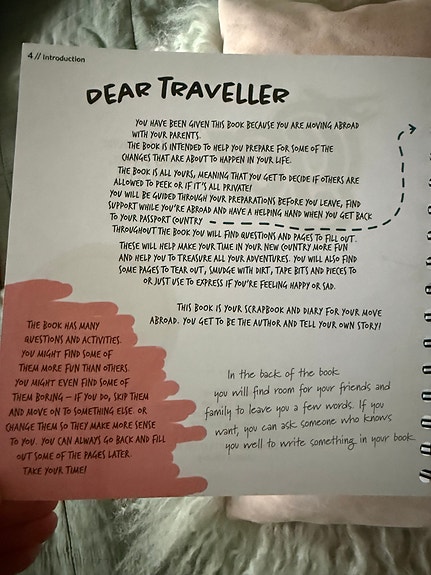 4 // Introduction
DEAR TRAVELLER
YOU HAVE BEEN GIVEN THIS BOOK BECAUSE YOU ARE MOVING ABROAD
WITH YOUR PARENTS.
THE BOOK IS INTENDED TO HELP YOU PREPARE FOR SOME OF THE
CHANGES THAT ARE ABOUT TO HAPPEN IN YOUR LIFE.
THE BOOK IS ALL YOURS, MEANING THAT YOU GET TO DECIDE IF OTHERS ARE
ALLOWED TO PEEK OR IF IT'S ALL PRIVATE!
YOU WILL BE GUIDED THROUGH YOUR PREPARATIONS BEFORE YOU LEAVE, FIND
SUPPORT WHILE YOU'RE ABROAD AND HAVE A HELPING HAND WHEN YOU GET BACK
TO YOUR PASSPORT COUNTRY
THROUGHOUT THE BOOK YOU WILL FIND QUESTIONS AND PAGES TO FILL OUT.
THESE WILL HELP MAKE YOUR TIME IN YOUR NEW COUNTRY MORE FUN
AND HELP YOU TO TREASURE ALL YOUR ADVENTURES. YOU WILL ALSO FIND
SOME PAGES TO TEAR OUT, SMUDGE WITH DIRT, TAPE BITS AND PIECES TO
OR JUST USE TO EXPRESS IF YOU'RE FEELING HAPPY OR SAD.
THIS BOOK IS YOUR SCRAPBOOK AND DIARY FOR YOUR MOVE
ABROAD. YOU GET TO BE THE AUTHOR AND TELL YOUR OWN STORY!
THE BOOK HAS MANY
QUESTIONS AND ACTIVITIES.
YOU MIGHT FIND SOME OF
THEM MORE FUN THAN OTHERS.
YOU MIGHT EVEN FIND SOME OF
THEM BORING – IF YOU DO, SKIP THEM
AND MOVE ON TO SOMETHING ELSE. OR
CHANGE THEM SO THEY MAKE MORE SENSE
TO YOU. YOU CAN ALWAYS GO BACK AND FILL
OUT SOME OF THE PAGES LATER.
TAKE YOUR TIME!
In the back of the book
you will find room for your friends and
family to leave you a few words. If you
want, you can ask someone who knows
you well to write something in your book.